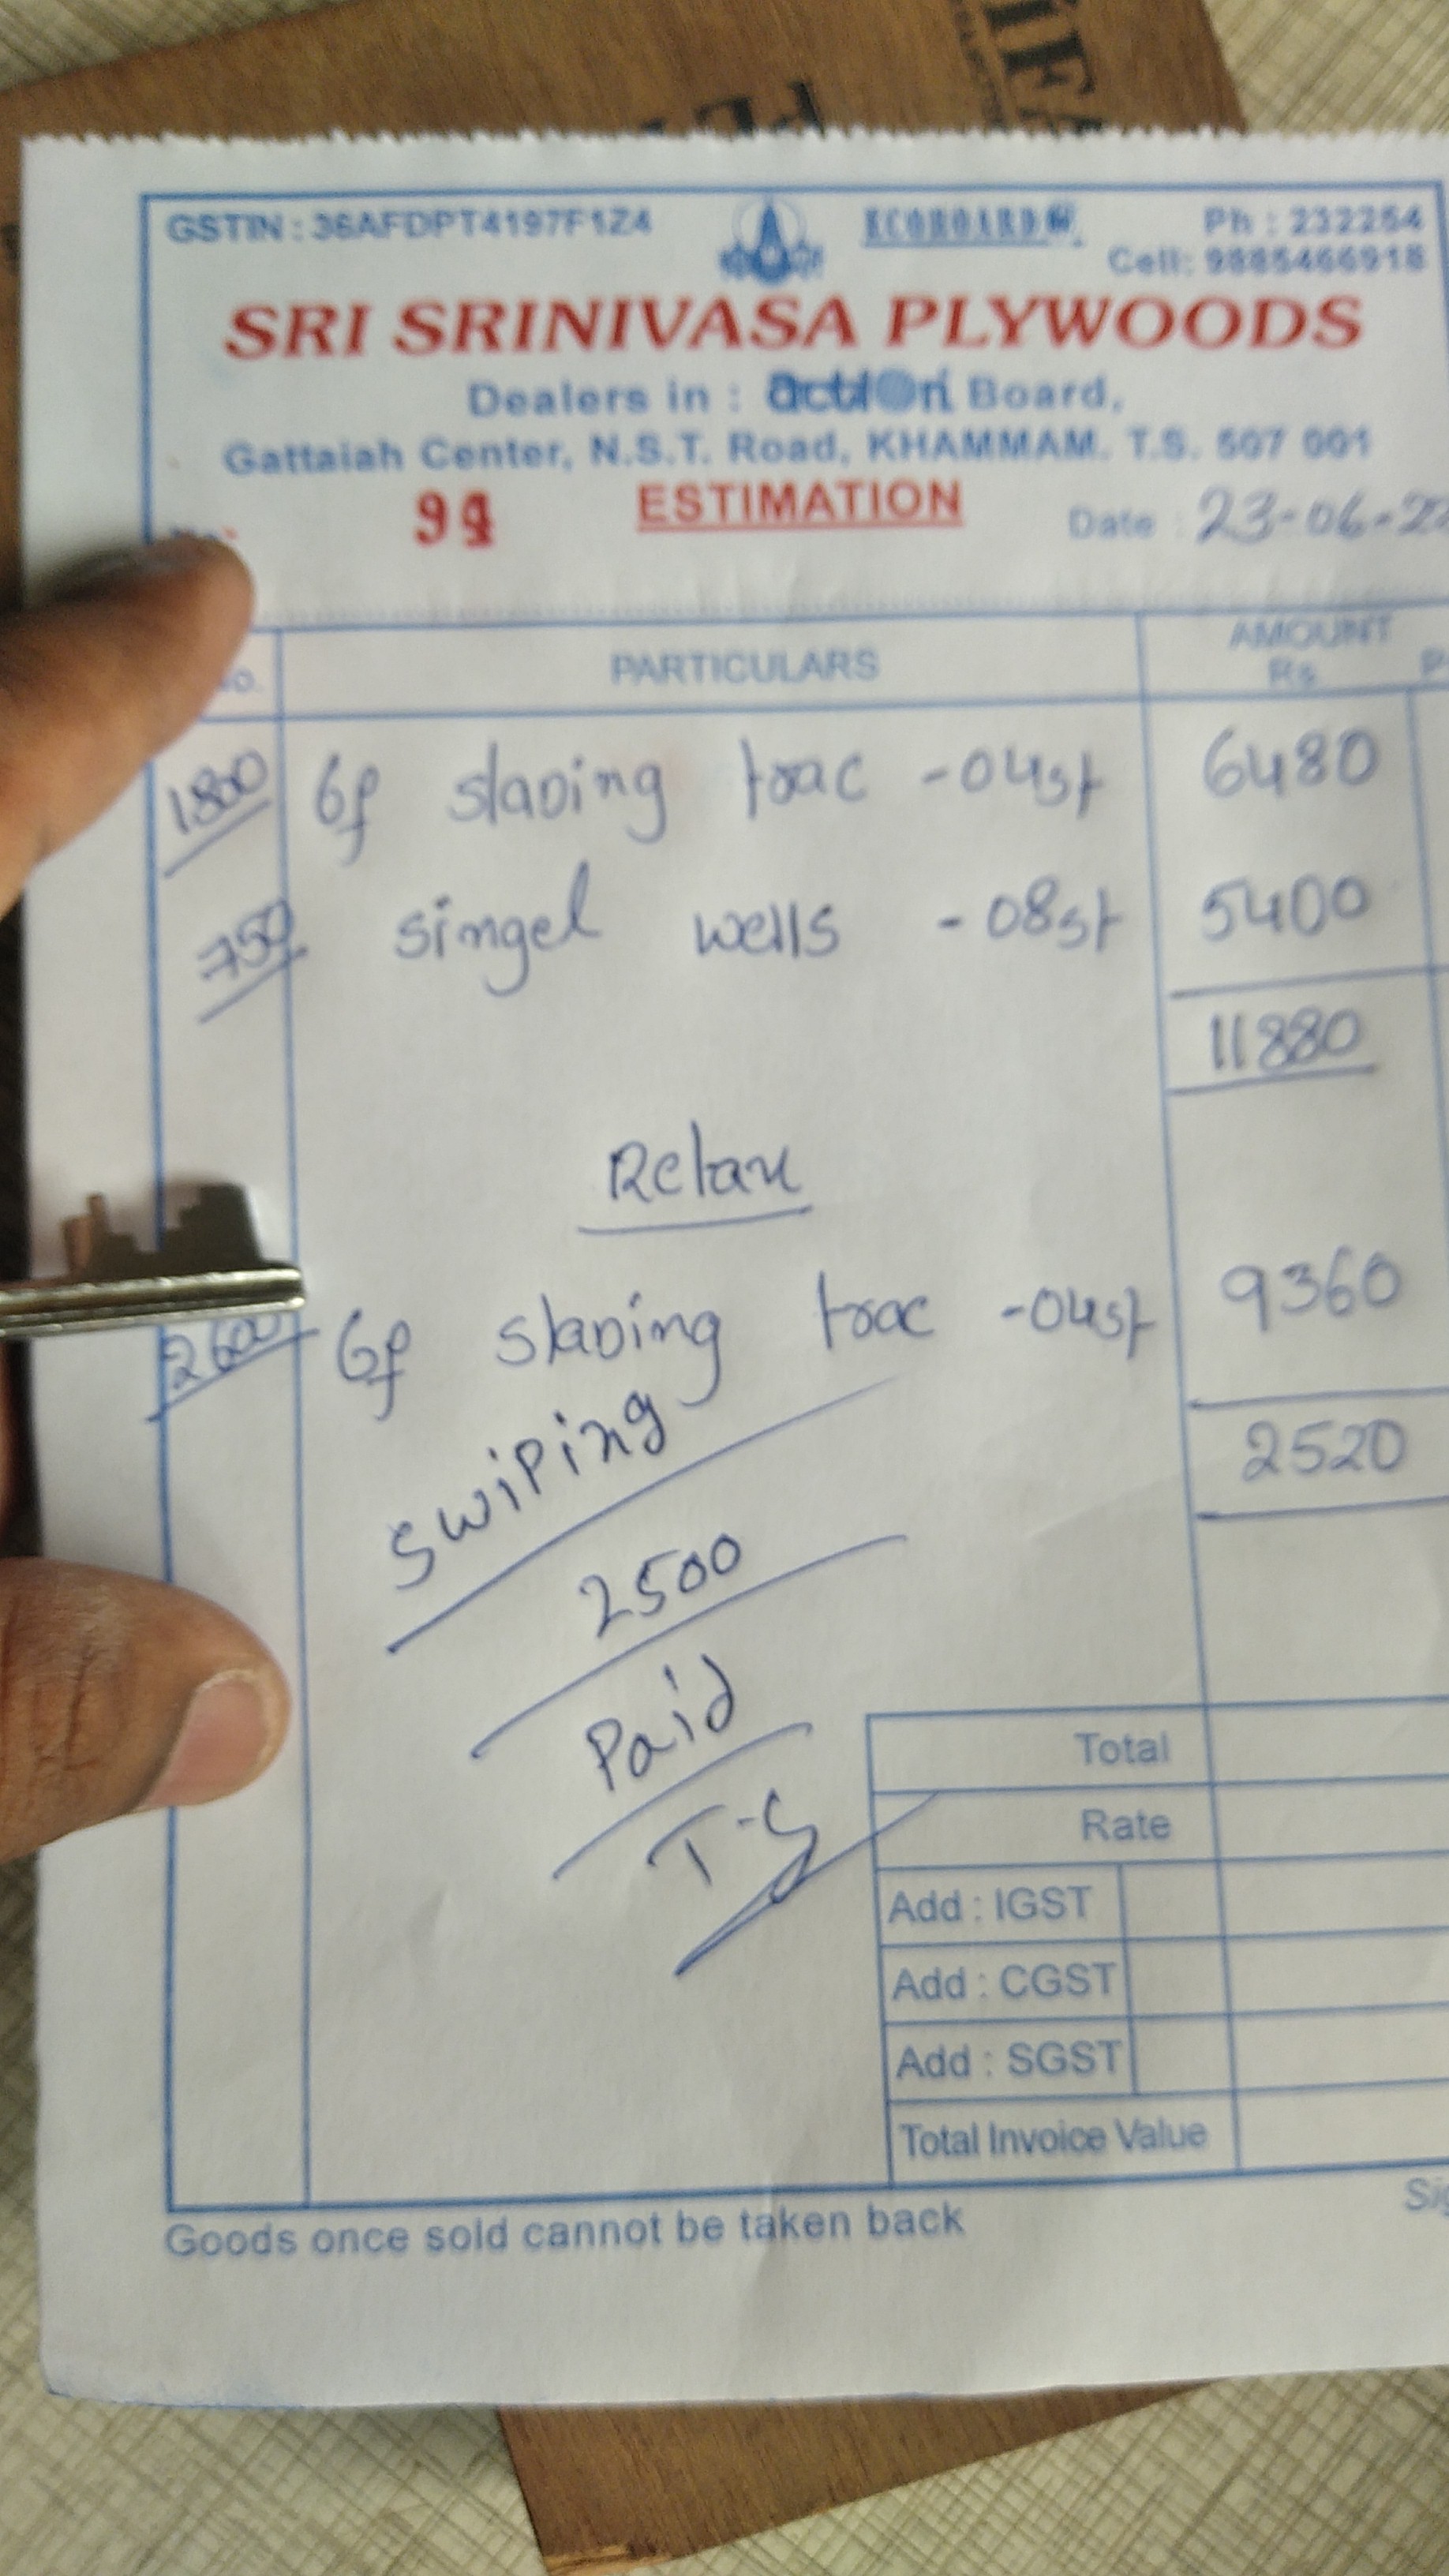 GSTIN : 36AFDPT4197F1Z4 ECOBOARD Ph : 232254
Cell: 9885466918
SRI SRINIVASA PLYWOODS
Dealers in : action Board,
Gattaiah Center, N.S.T. Road, KHAMMAM. T.S. 507 001
ESTIMATION Date : 23-06-2
PARTICULARS AMOUNT
Rs
1800 6f slaoing trac - 04st 6480
750 singel wells - 08st 5400
11880
Retan
2600 6f slaoing trac - 04st 9360
swiping 2520
2500
Paid
Total
Rate
Add : IGST
Add : CGST
Add : SGST
Total Invoice Value
Goods once sold cannot be taken back